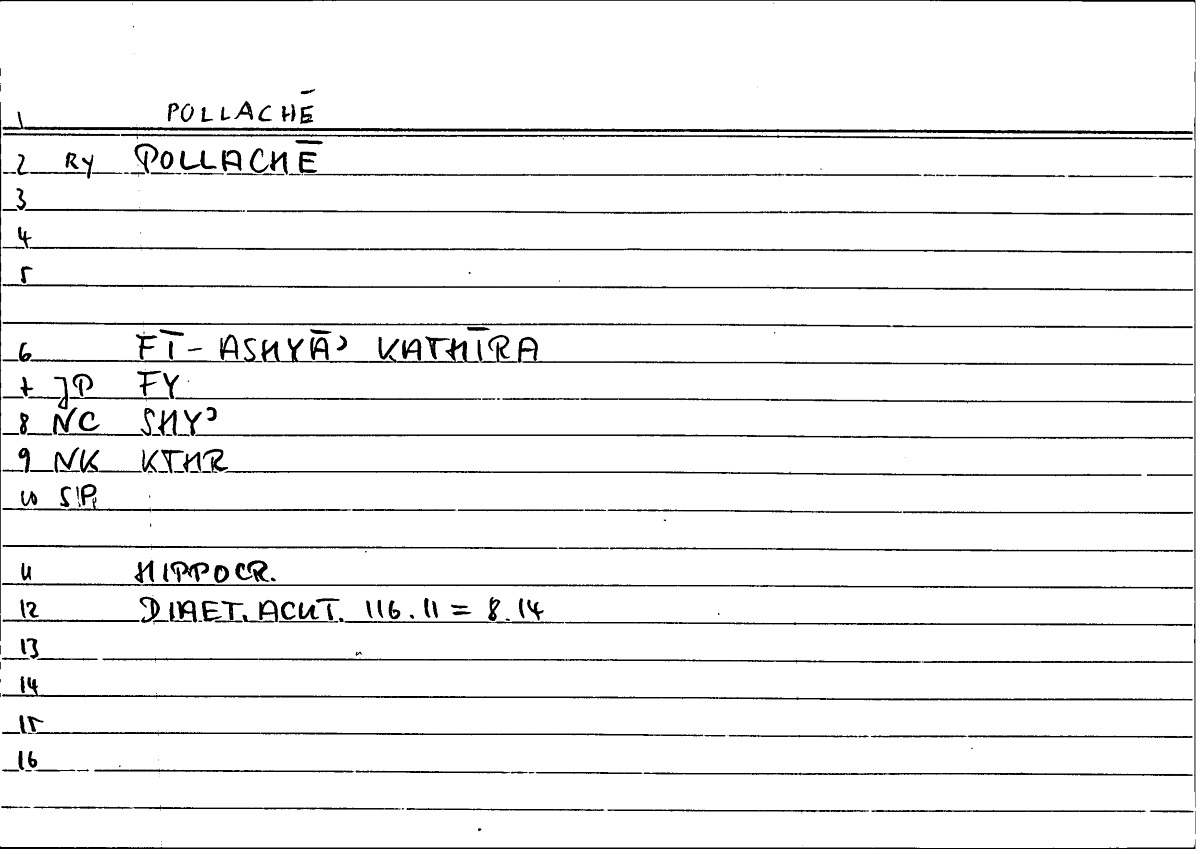 1 POLLACHĒ
2 RY POLLACHĒ
3
4
5
6 FĪ-ASHYĀʾ KATHĪRA
7 JP FY
8 NC SHYʾ
9 NK KTHR
10 SP
11 HIPPOCR.
12 DIAET. ACUT. 116.11 = 8.14
13
14
15
16